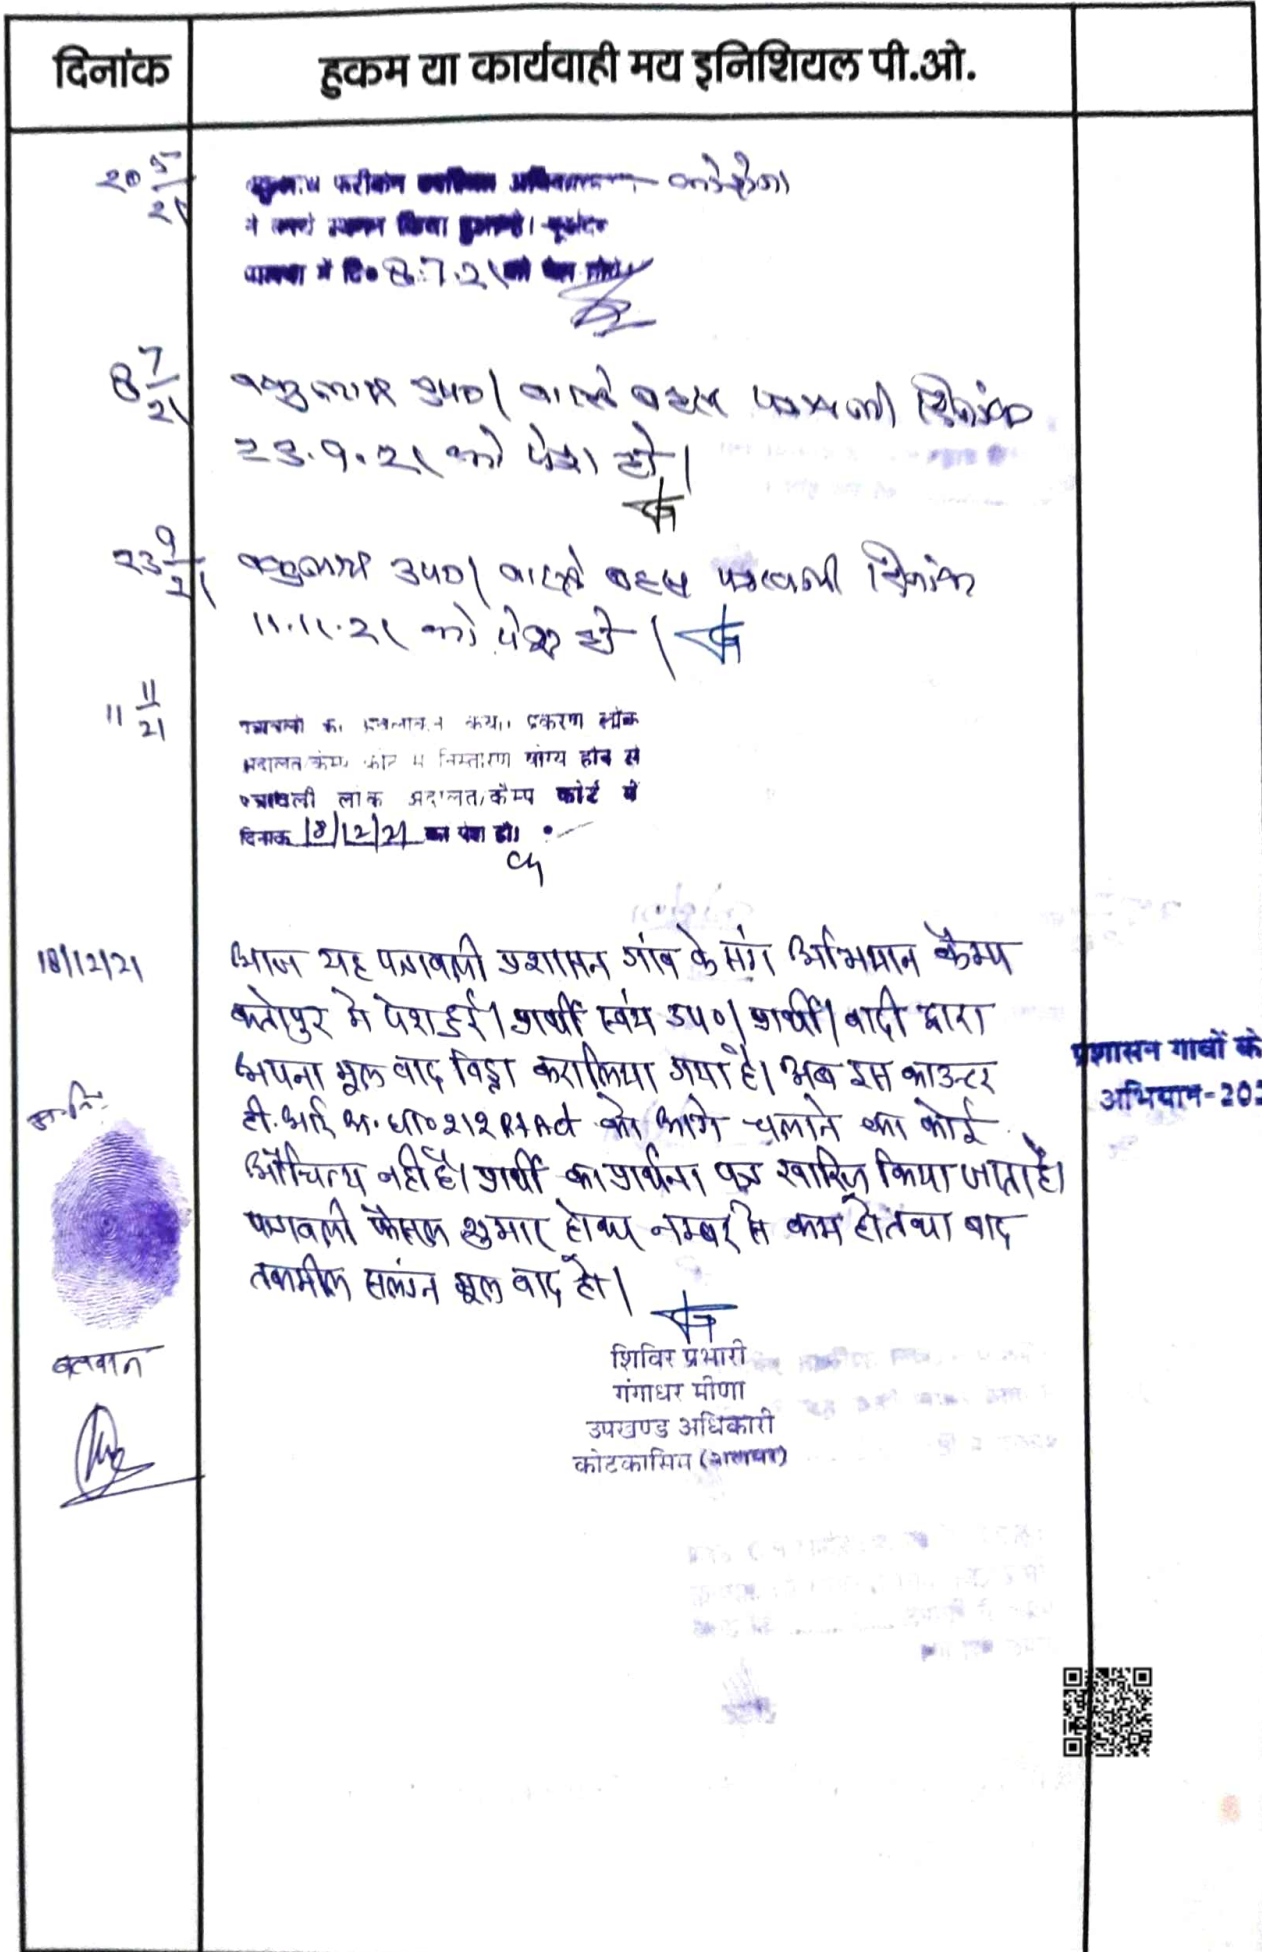 दिनांक
हुकम या कार्यवाही मय इनिशियल पी.ओ.
20 5/21
फरीकेन
ने कार्य स्थगन किया हुआ है।
में दि० 8.7.21 को पेश हो।
8 7/21
वकुलाय उप०। वास्ते बहस पत्रावली दिनांक
23.9.21 को पेश हो।
23 9/21
वकुलाय उप०। वास्ते बहस पत्रावली दिनांक
11.11.21 को पेश हो।
11 11/21
पत्रावली का अवलोकन किया। प्रकरण लोक
अदालत/कैम्प कोर्ट में निस्तारण योग्य होने से
पत्रावली लोक अदालत/कैम्प कोर्ट में
दिनांक 18/12/21 को पेश हो।
18/12/21
आज यह पत्रावली प्रशासन गांव के संग अभियान कैम्प
में पेश हुई। प्रार्थी स्वंय उप०। प्रार्थी/वादी द्वारा
अपना मूल वाद विड्रा करा लिया गया है। अब इस काउन्टर
टी.आई अ. धा० 212 RTAct को आगे चलाने का कोई
औचित्य नहीं है। प्रार्थी का प्रार्थना पत्र खारिज किया जाता है।
पत्रावली फैसल शुमार होकर नम्बर से कम हो तथा बाद
तकमील सलंग्न मूल वाद हो।
प्रशासन गावों के
अभियान-202
बलवान
शिविर प्रभारी
गंगाधर मीणा
उपखण्ड अधिकारी
कोटकासिम (अलवर)